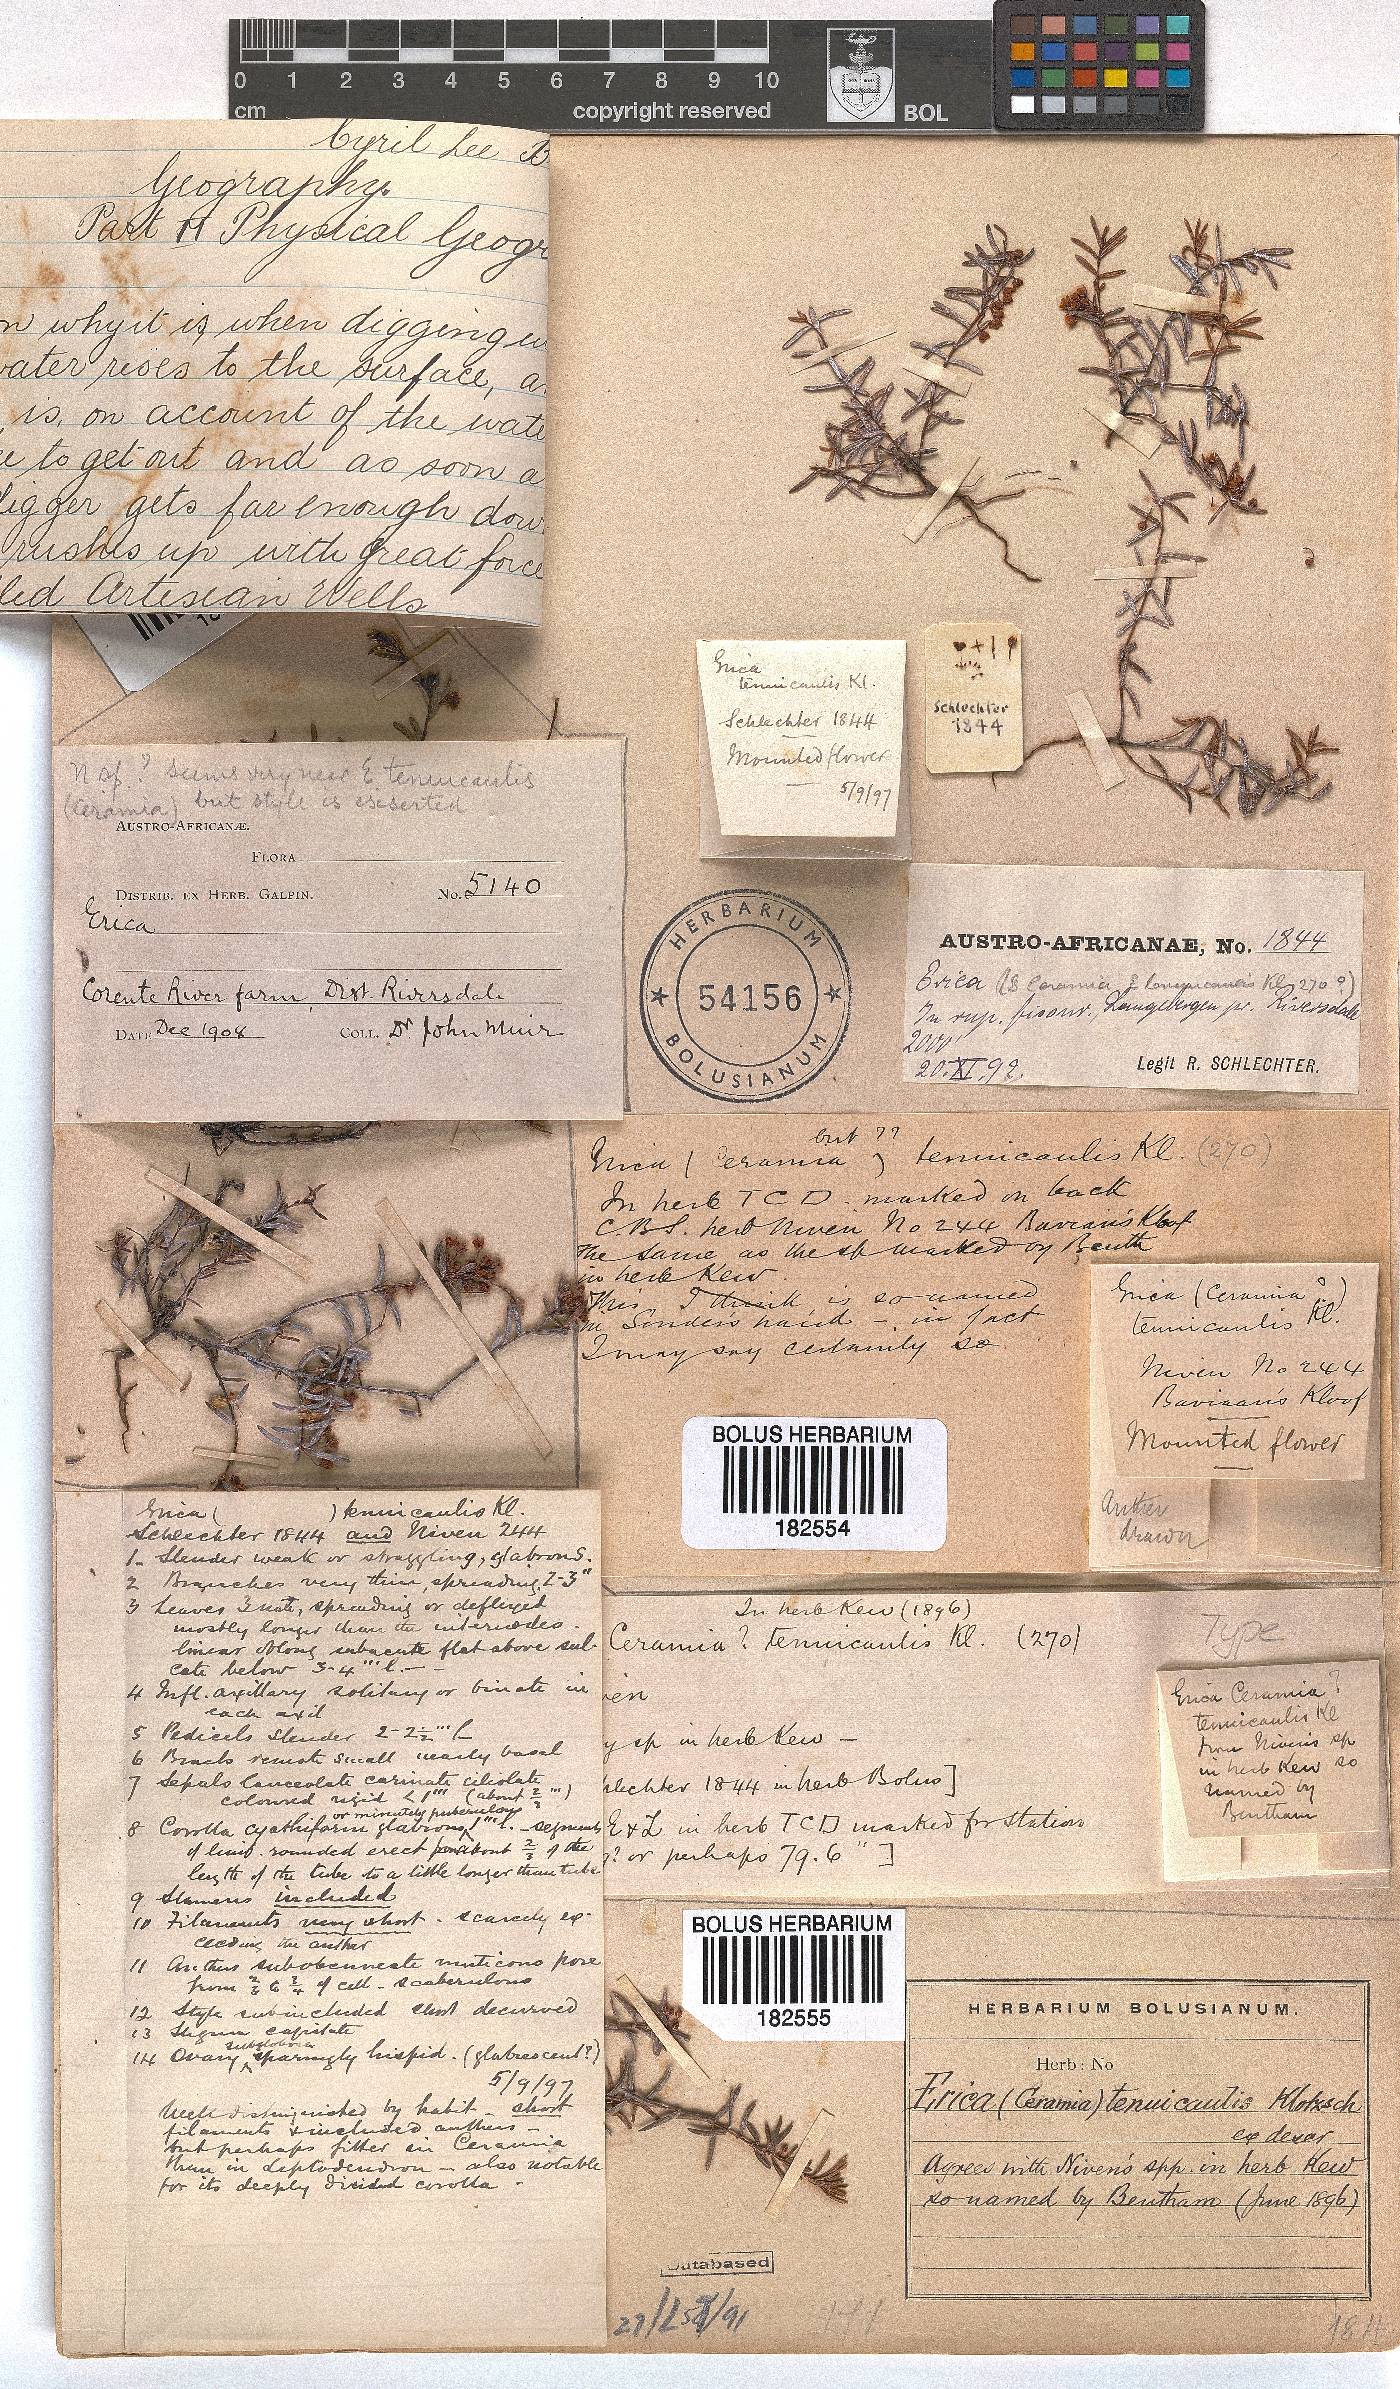 0 1 2 3 4 5 6 7 8 9 10
cm
copyright reserved
BOL
Cyril Lee B
Geography.
Part II Physical Geogr
n why it is, when digging w
water rises to the surface, a
is, on account of the wate
to get out and as soon a
digger gets far enough dow
rushes up with great force
led Artesian Wells
Erica
tenuicaulis Kl.
Schlechter 1844
Mounted flower
5/9/97
Schlechter
1844
N sp.? seems very near E tenuicaulis
(Ceramia) but style is exserted
AUSTRO-AFRICANÆ.
FLORA
DISTRIB. EX HERB. GALPIN.
No. 5140
Erica
Corente River farm, Dist. Riversdale
DATE Dec 1908
COLL. Dr John Muir
HERBARIUM
54156
BOLUSIANUM
AUSTRO-AFRICANAE, No. 1844
Erica (§ Ceramia E tenuicaulis Kl. 270?)
In rup. fissur. Langebergen pr. Riversdale
20.XI.92.
Legit R. SCHLECHTER.
but ??
Erica (Ceramia) tenuicaulis Kl. (270)
In herb TCD. marked on back
C.B.S. herb Niven No 244 Bavian's Kloof
the same as the sp marked by Benth
in herb Kew.
This, I think, is so named
in Sonder's hand - in fact
I may say certainly so
Erica (Ceramia ?)
tenuicaulis Kl.
Niven No 244
Bavian's Kloof
Mounted flower
Anther
drawn
BOLUS HERBARIUM
182554
Erica ( ) tenuicaulis Kl.
Schlechter 1844 and Niven 244
1 - Slender weak or straggling, glabrous.
2 Branches very thin, spreading, 2-3"
3 Leaves 3nate, spreading or deflexed
mostly longer than the internodes.
linear oblong subacute flat above sul-
cate below 3-4"' l. —
4 Infl. axillary solitary or binate in
each axil
5 Pedicels slender 2-2½"' l
6 Bracts remote small nearly basal
7 Sepals lanceolate carinate ciliolate
coloured rigid <1"' (about ⅔"')
or minutely puberulous
8 Corolla cyathiform glabrous 1"' l. - segments
of limb. rounded erect from about ⅔ of the
length of the tube to a little longer than tube
9 Stamens included
10 Filaments very short. scarcely ex-
ceeding the anther
11 Anthers subobcuneate muticous pore
from ⅔ to ¾ of cell - scaberulous
12 Style subincluded short decurved
13 Stigma capitate
subglobose
14 Ovary sparingly hispid. (glabrescent?)
5/9/97
Well distinguished by habit - short
filaments & included anthers -
but perhaps fitter in Ceramia
than in Leptodendron - also notable
for its deeply divided corolla -
In herb Kew (1896)
Ceramia? tenuicaulis Kl. (270)
Type
ven
y sp in herb Kew -
hlechter 1844 in herb Bolus]
E & Z in herb TCD marked for station
? or perhaps 79.6" ]
Erica Ceramia?
tenuicaulis Kl
from Niven's sp
in herb Kew so
named by
Bentham
BOLUS HERBARIUM
182555
HERBARIUM BOLUSIANUM.
Herb: No
Erica (Ceramia) tenuicaulis Klotzsch
ex descr
Agrees with Niven's spp. in herb Kew
so named by Bentham (June 1896)
Databased